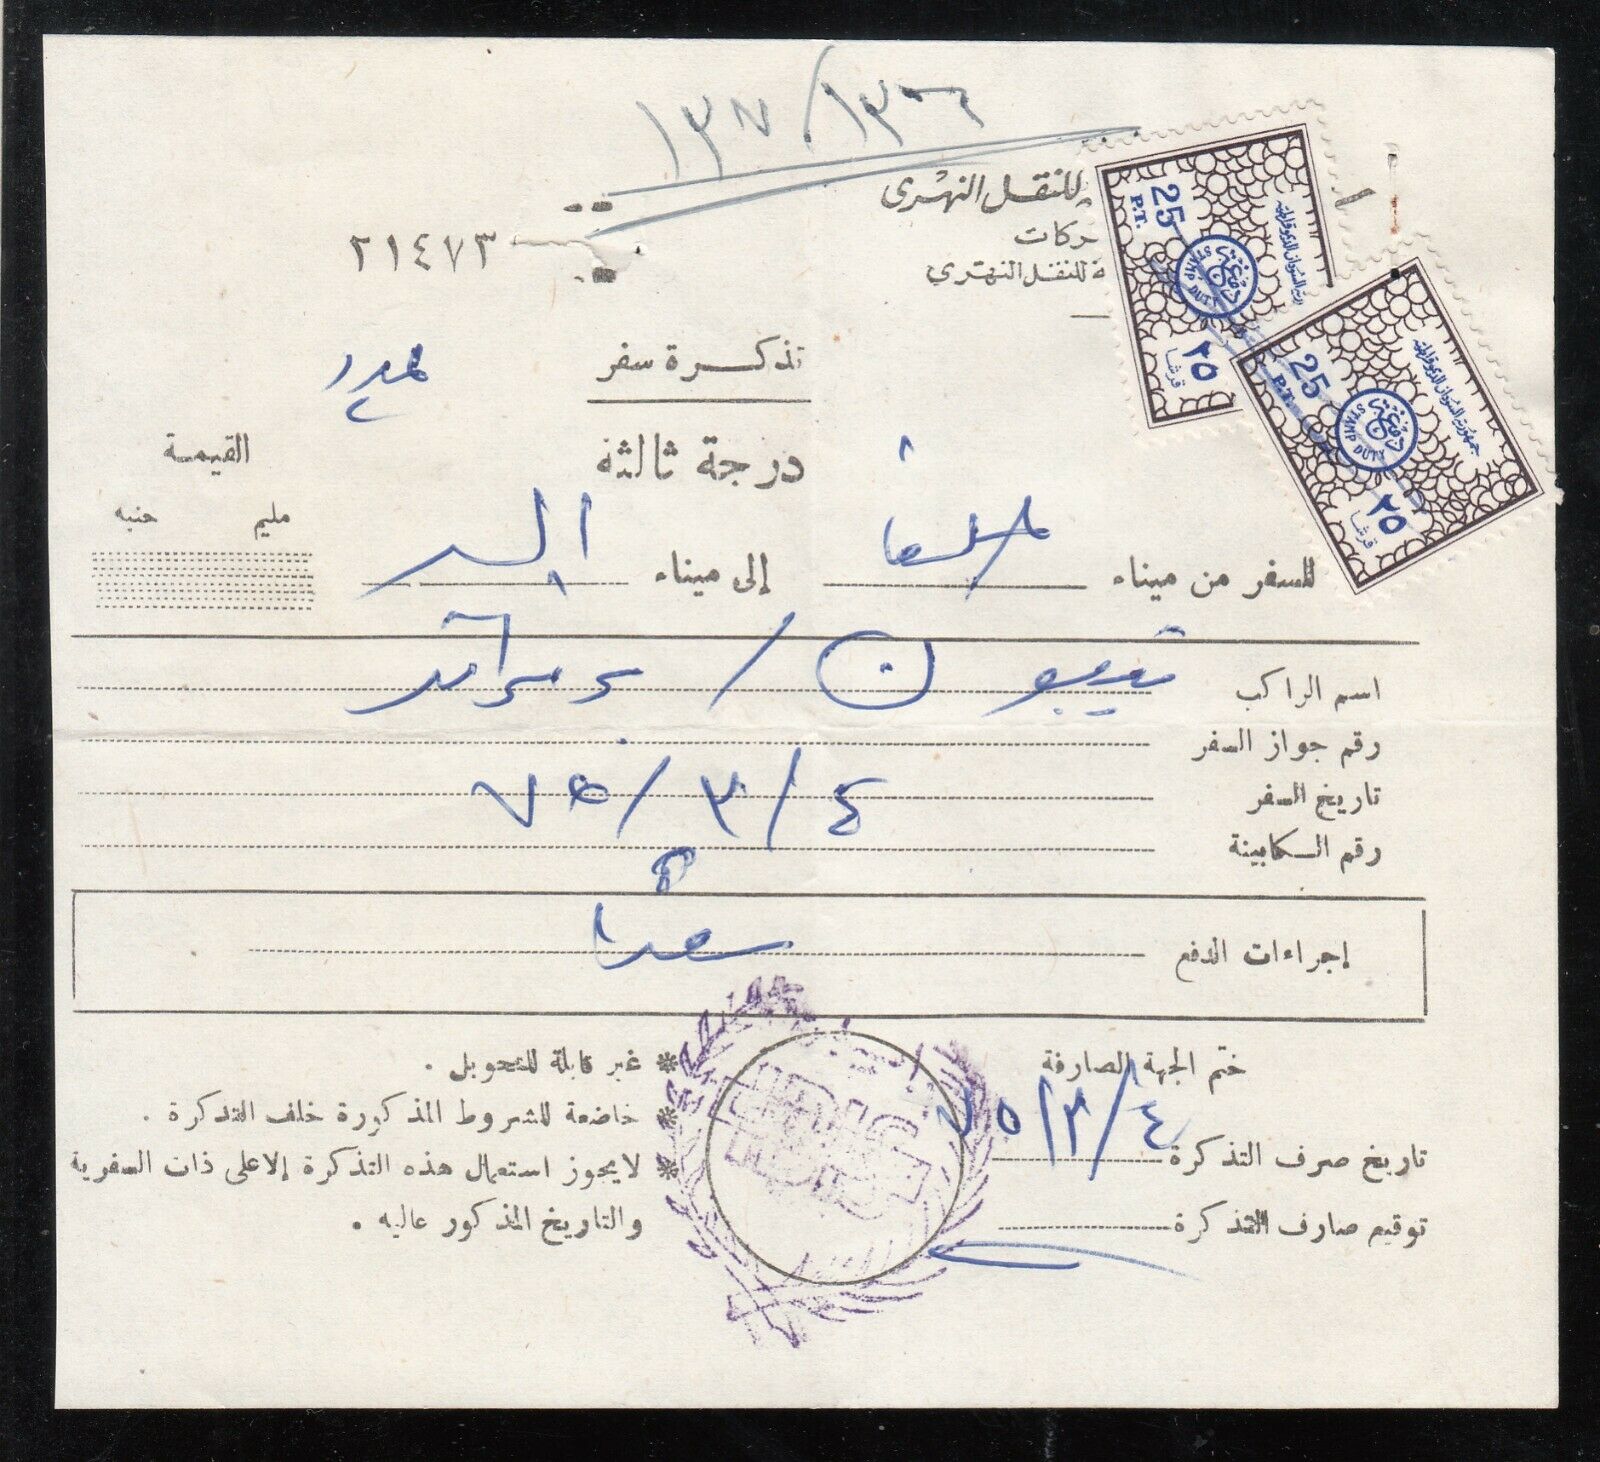 ١٣٧ / ١٣٠٦
للنقل النهري
ركات
ة للنقل النهري
٢١٤٧٣
25
P.T.
STAMP DUTY
٢٥
قرشا
جمهورية السودان الديمقراطية
25
P.T.
STAMP DUTY
٢٥
قرشا
تذكرة سفر
درجة ثالثة
القيمة
مليم جنيه
للسفر من ميناء حلفا إلى ميناء السد
اسم الراكب
رقم جواز السفر
تاريخ السفر ٤/٣/٧٥
رقم الكابينة
إجراءات الدفع نقدا
ختم الجهة الصارفة
تاريخ صرف التذكرة ٤/٣/٧٥
توقيع صارف التذكرة
* غير قابلة للتحويل .
* خاضعة للشروط المذكورة خلف التذكرة .
* لا يجوز استعمال هذه التذكرة إلا على ذات السفرية
والتاريخ المذكور عاليه .